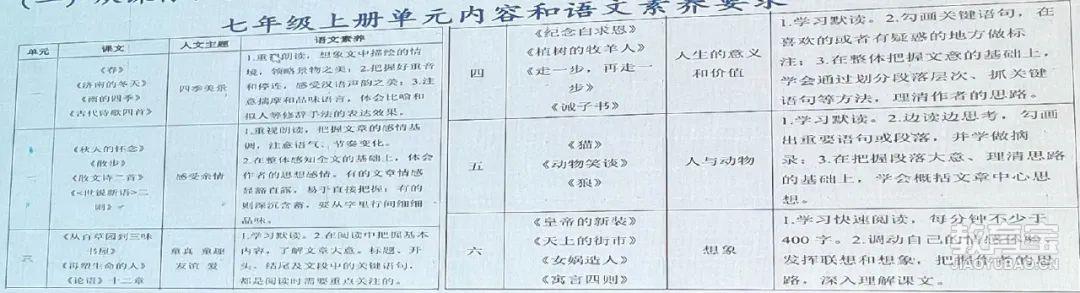 七年级上册单元内容和语文素养要求
单元 课文 人文主题 语文素养
一
《春》
《济南的冬天》
《雨的四季》
《古代诗歌四首》
四季美景
1.重视朗读，想象文中描绘的情
境，领略景物之美；2.把握好重音
和停连，感受汉语声韵之美；3.注
意揣摩和品味语言，体会比喻和
拟人等修辞手法的表达效果。
《秋天的怀念》
《散步》
《散文诗二首》
《<世说新语>二
则》
感受亲情
1.重视朗读，把握文章的感情基
调，注意语气、节奏变化。
2.在整体感知全文的基础上，体会
作者的思想感情。有的文章情感
显豁直露，易于直接把握；有的
则深沉含蓄，要从字里行间细细
品味。
三
《从百草园到三味
书屋》
《再塑生命的人》
《论语》十二章
童真 童趣
友谊 爱
1.学习默读。2.在阅读中把握基本
内容，了解文章大意。标题、开
头、结尾及文段中的关键语句，
都是阅读时需要重点关注的。
四
《纪念白求恩》
《植树的牧羊人》
《走一步，再走一
步》
《诫子书》
人生的意义
和价值
1.学习默读。2.勾画关键语句，在
喜欢的或者有疑惑的地方做标
注；3.在整体把握文意的基础上，
学会通过划分段落层次、抓关键
语句等方法，理清作者的思路。
五
《猫》
《动物笑谈》
《狼》
人与动物
1.学习默读。2.边读边思考，勾画
出重要语句或段落，并学做摘
录；3.在把握段落大意、理清思路
的基础上，学会概括文章中心思
想。
六
《皇帝的新装》
《天上的街市》
《女娲造人》
《寓言四则》
想象
1.学习快速阅读，每分钟不少于
400 字。2.调动自己的情感体验
发挥联想和想象，把握作者的思
路，深入理解课文。
教育宝
JIAOYUBAO.CN